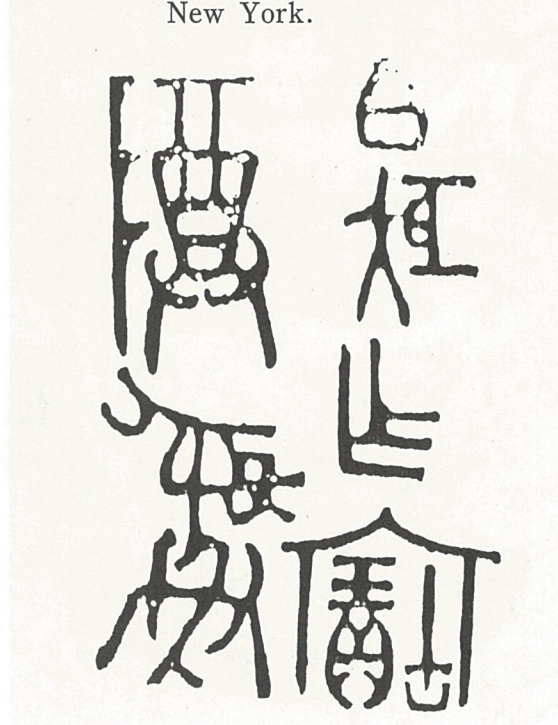 New York.
白矩乍寶
𨺅彝